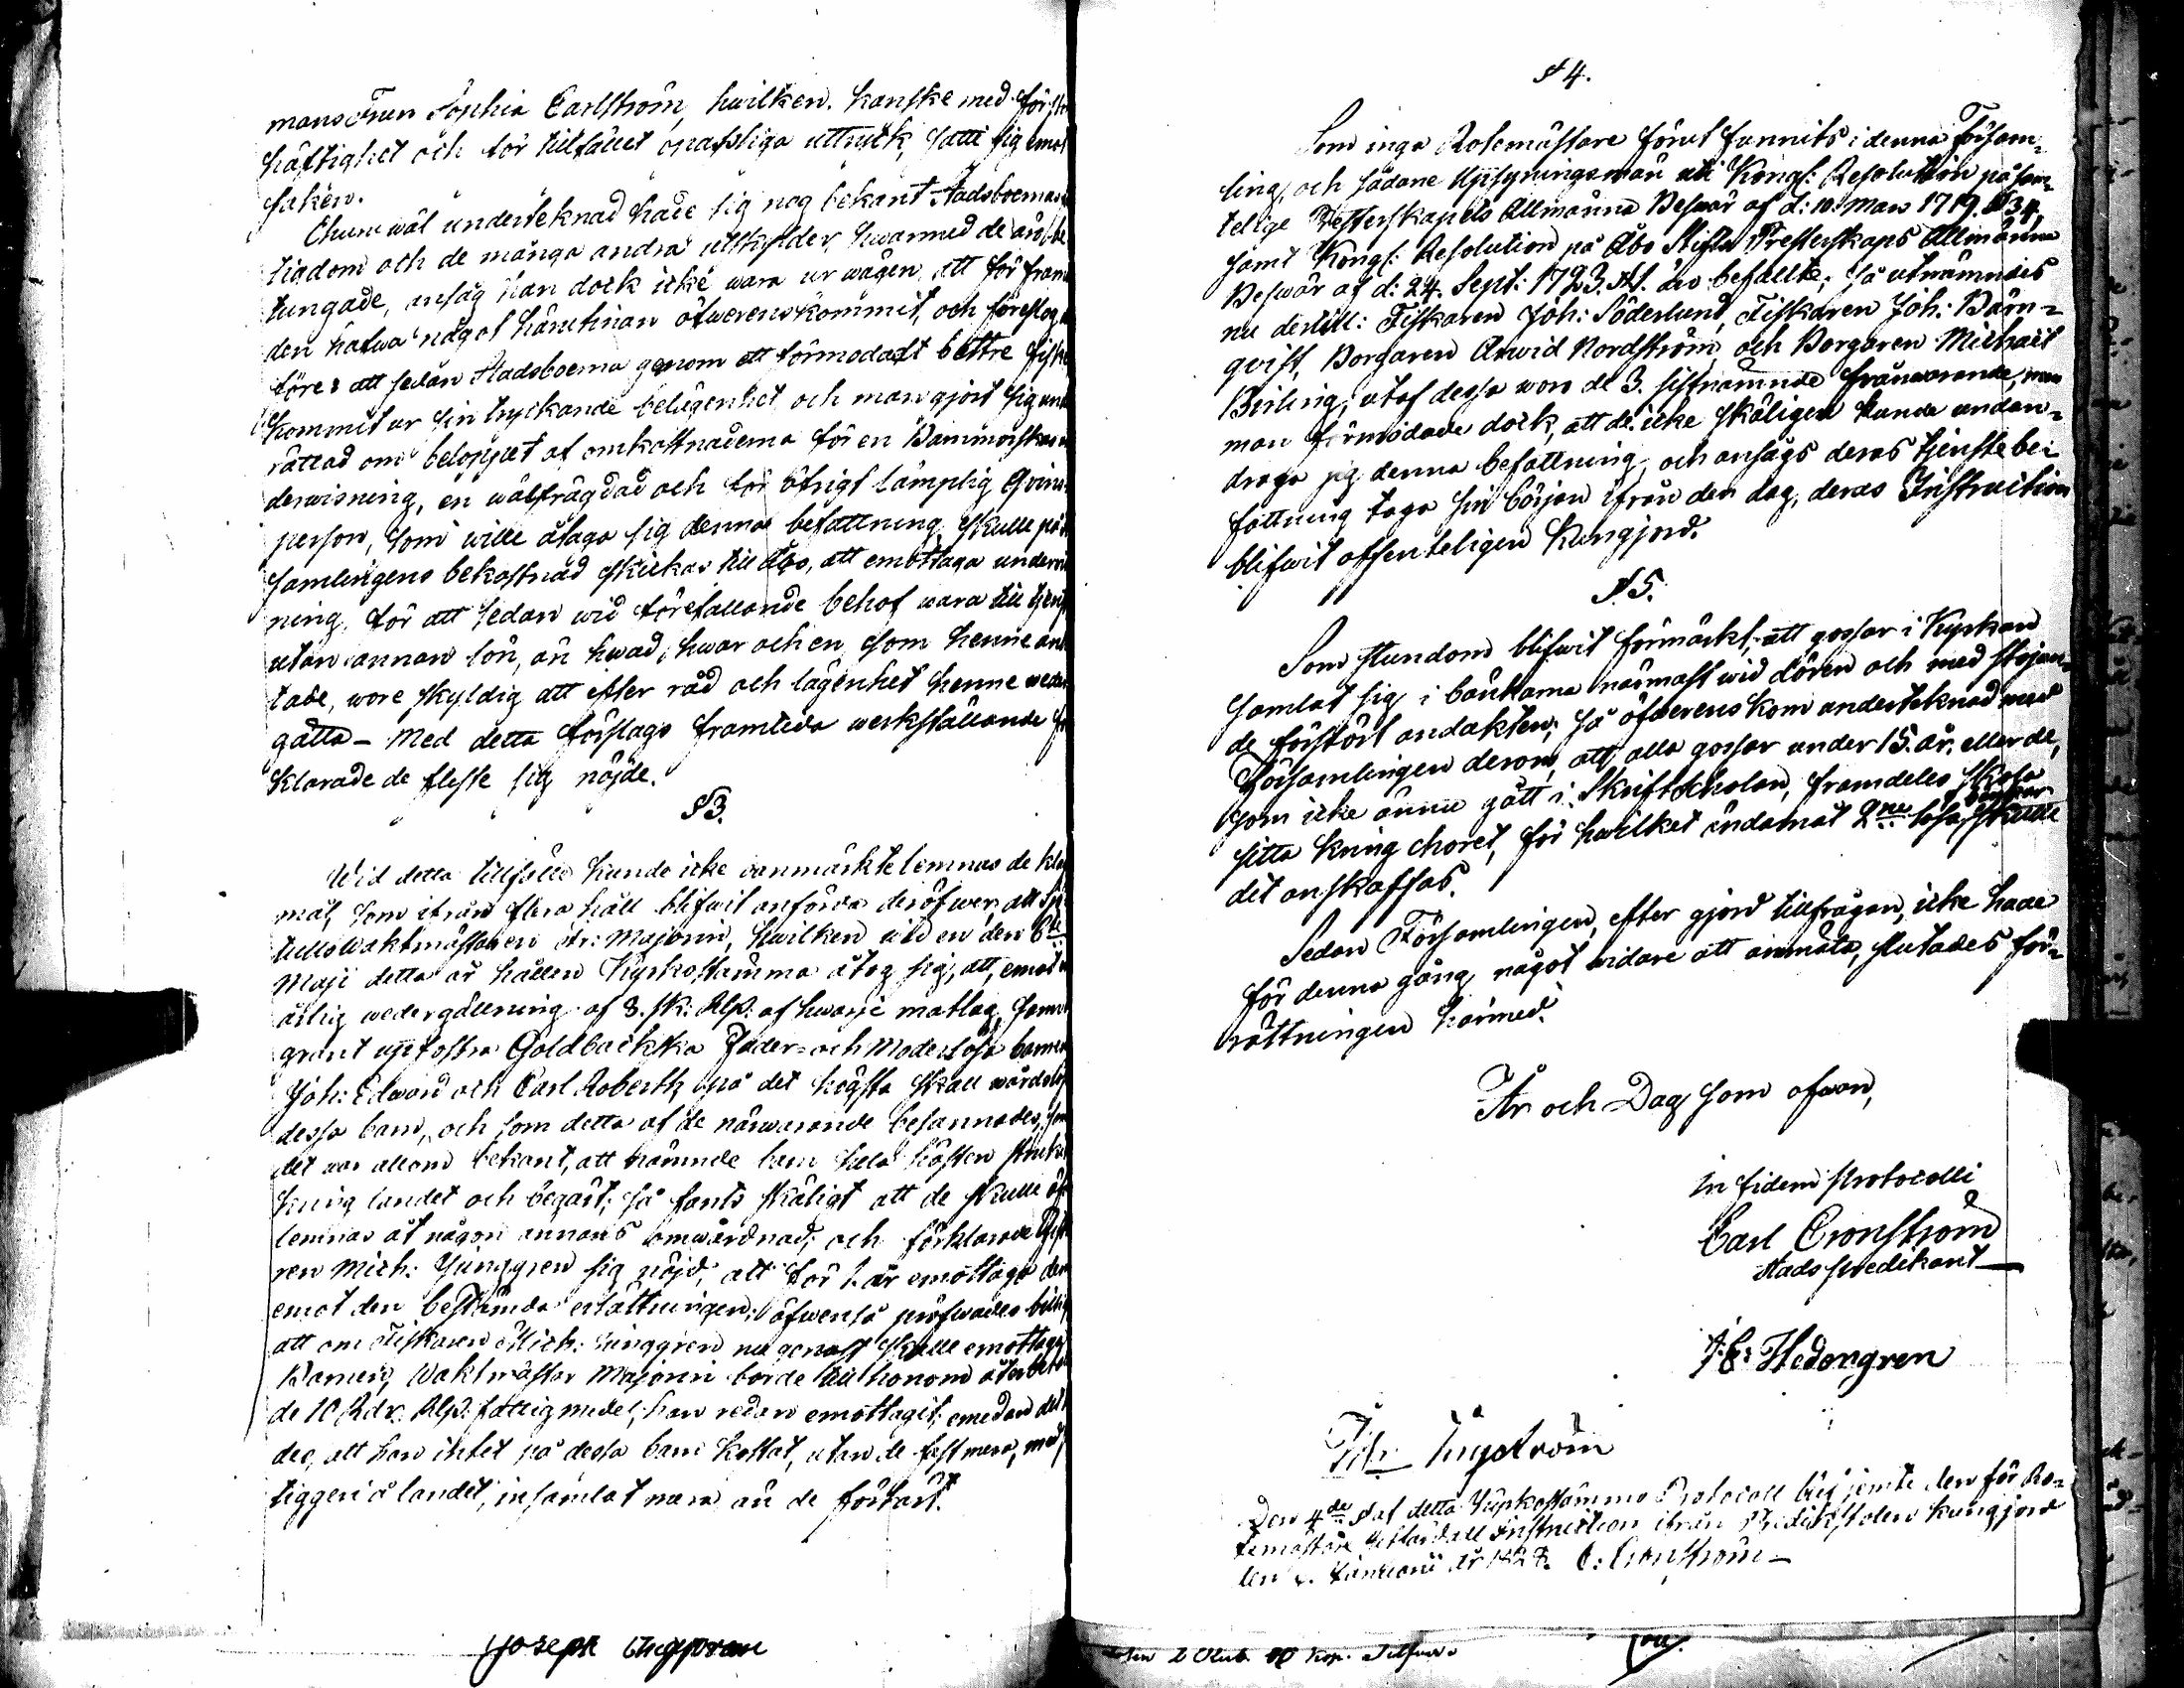 mans Frun Sophia Carlström, hwilken kanske med för stor
häftighet och för tillfället opassliga uttryck, satte sig emot
saken.
Churu wäl underteknad hade sig nog bekant Stadsboernas
tiadom och de många andra utskylder, hwarmed de äro be
tungade, ansåg han dock icke wara ur wägen, att för fram
den hafwa något härutinan öfwerenskommit, och föreslog
före: att sedan Stadsboerna genom ett förmodadt bättre fiske
kommit ur sin tryckande belägenhet och man gjort sig und
rättad om beloppet af omkostnaderna för en Barnmorskas un
derwisning, en wälfrägdad och för öfrigt lämplig Qvins
person, som wille åtaga sig denna befattning, skulle på
samlingens bekostnad skickas till Åbo, att emottaga underwis
ning, för att sedan wid förefallande behof wara till tjenst
utan annan lön, än hwad, hwar och en som henne anli
tade, wore skyldig att efter råd och lägenhet henne weder
gälla – Med detta förslags framtida werkställande för
klarade de fleste sig nöjde.
§ 3.
Wid detta tillfälle kunde icke oanmärkte lemnas de klago
mål, som ifrån flera håll blifwit anförda deröfwer, att Sjö
tullswaktmästaren Fr: Majorin, hwilken wid en den 6te
Maji detta år hållen Kyrkostämma åtog sig, att, emot en
årlig wedergällning af 8. sk: Rß: af hwarje matlag, sam
grant uppfostra Goldbackska Fader- och Moderlösa barnen
Joh: Edward och Carl Robert, på det högsta skall wårdslöst
dessa barn, och som detta af de närwarande besannades, sam
det war allom bekant, att nämnde barn hela hösten strukit
kring landet och begärt; så fants skäligt att de skulle öf
lemnas åt någon annans omwårdnad; och förklarade Fiska
ren Mich: Ljunggren sig nöjd, att för 1. år emottaga dem
emot den bestämda ersättningen; äfwenså pröfwades billigt
att om Fiskaren Mich: Ljunggren nu genast skulle emottaga
Barnen, Waktmästar Majorin borde till honom återbetala
de 10 Rdr. Rß: fattigmedel, han redan emottagit; emedan det
des, att han intet på dessa barn kostat, utan de fast mera, med
tiggeri å landet, insamlat mera än de förtärt.
Joseph
§ 4.
Som inga Rotemästare förut funnits i denna Försam-
ling, och sådane Uppsyningsmän uti Kongl: Resolution på sam-
telige Presterskapets Allmänna Beswär af d: 10. Mars 1719. § 34,
samt Kongl: Resolution på Åbo Stifts Presterskaps Allmänna
Beswär af d: 24. Sept: 1723. §1. äro befallte; så utnämndes
nu dertill: Fiskaren Joh: Söderlund, Fiskaren Joh: Bärn-
qvist, Borgaren Arwid Nordström, och Borgaren Michael
Birling; utaf dessa woro de 3. sistnämnde frånwarande, men
man förmodade dock, att de icke skäligen kunde undan-
draga sig denna befattning, och ansågs deras tjenstebe-
fattning taga sin början ifrån den dag, deras Instruction
blifwit offenteligen kungjord.
§ 5.
Som stundom blifwit förmärkt, att gossar i Kyrkan
samlat sig i bänkarna närmast wid dören och med stojan-
de förstört andakten; så öfwerenskom undertecknad med
Församlingen derom, att alla gossar under 15. år, eller de,
som icke ännu gått i Skriftscholan, framdeles skola
sitta kring choret, för hwilket ändamåt 2ne lösa bänkar skulle
dit anskaffas.
Sedan Församlingen, efter gjord tillfrågan, icke hade
för denna gång något widare att anmäla, slutades för-
rättningen härmed.
År och Dag som ofwan,
In fidem Protocolli
Carl Cronström
Stadspredikant
J: E: Hedengren
Joh: Engström
Den 4de § af detta Kyrkostämmo Protocoll blef jemte den för Ro-
temästare författade Instruction ifrån Predikstolen kungjord
den 6. Januarii År 1828. C: Cronström –